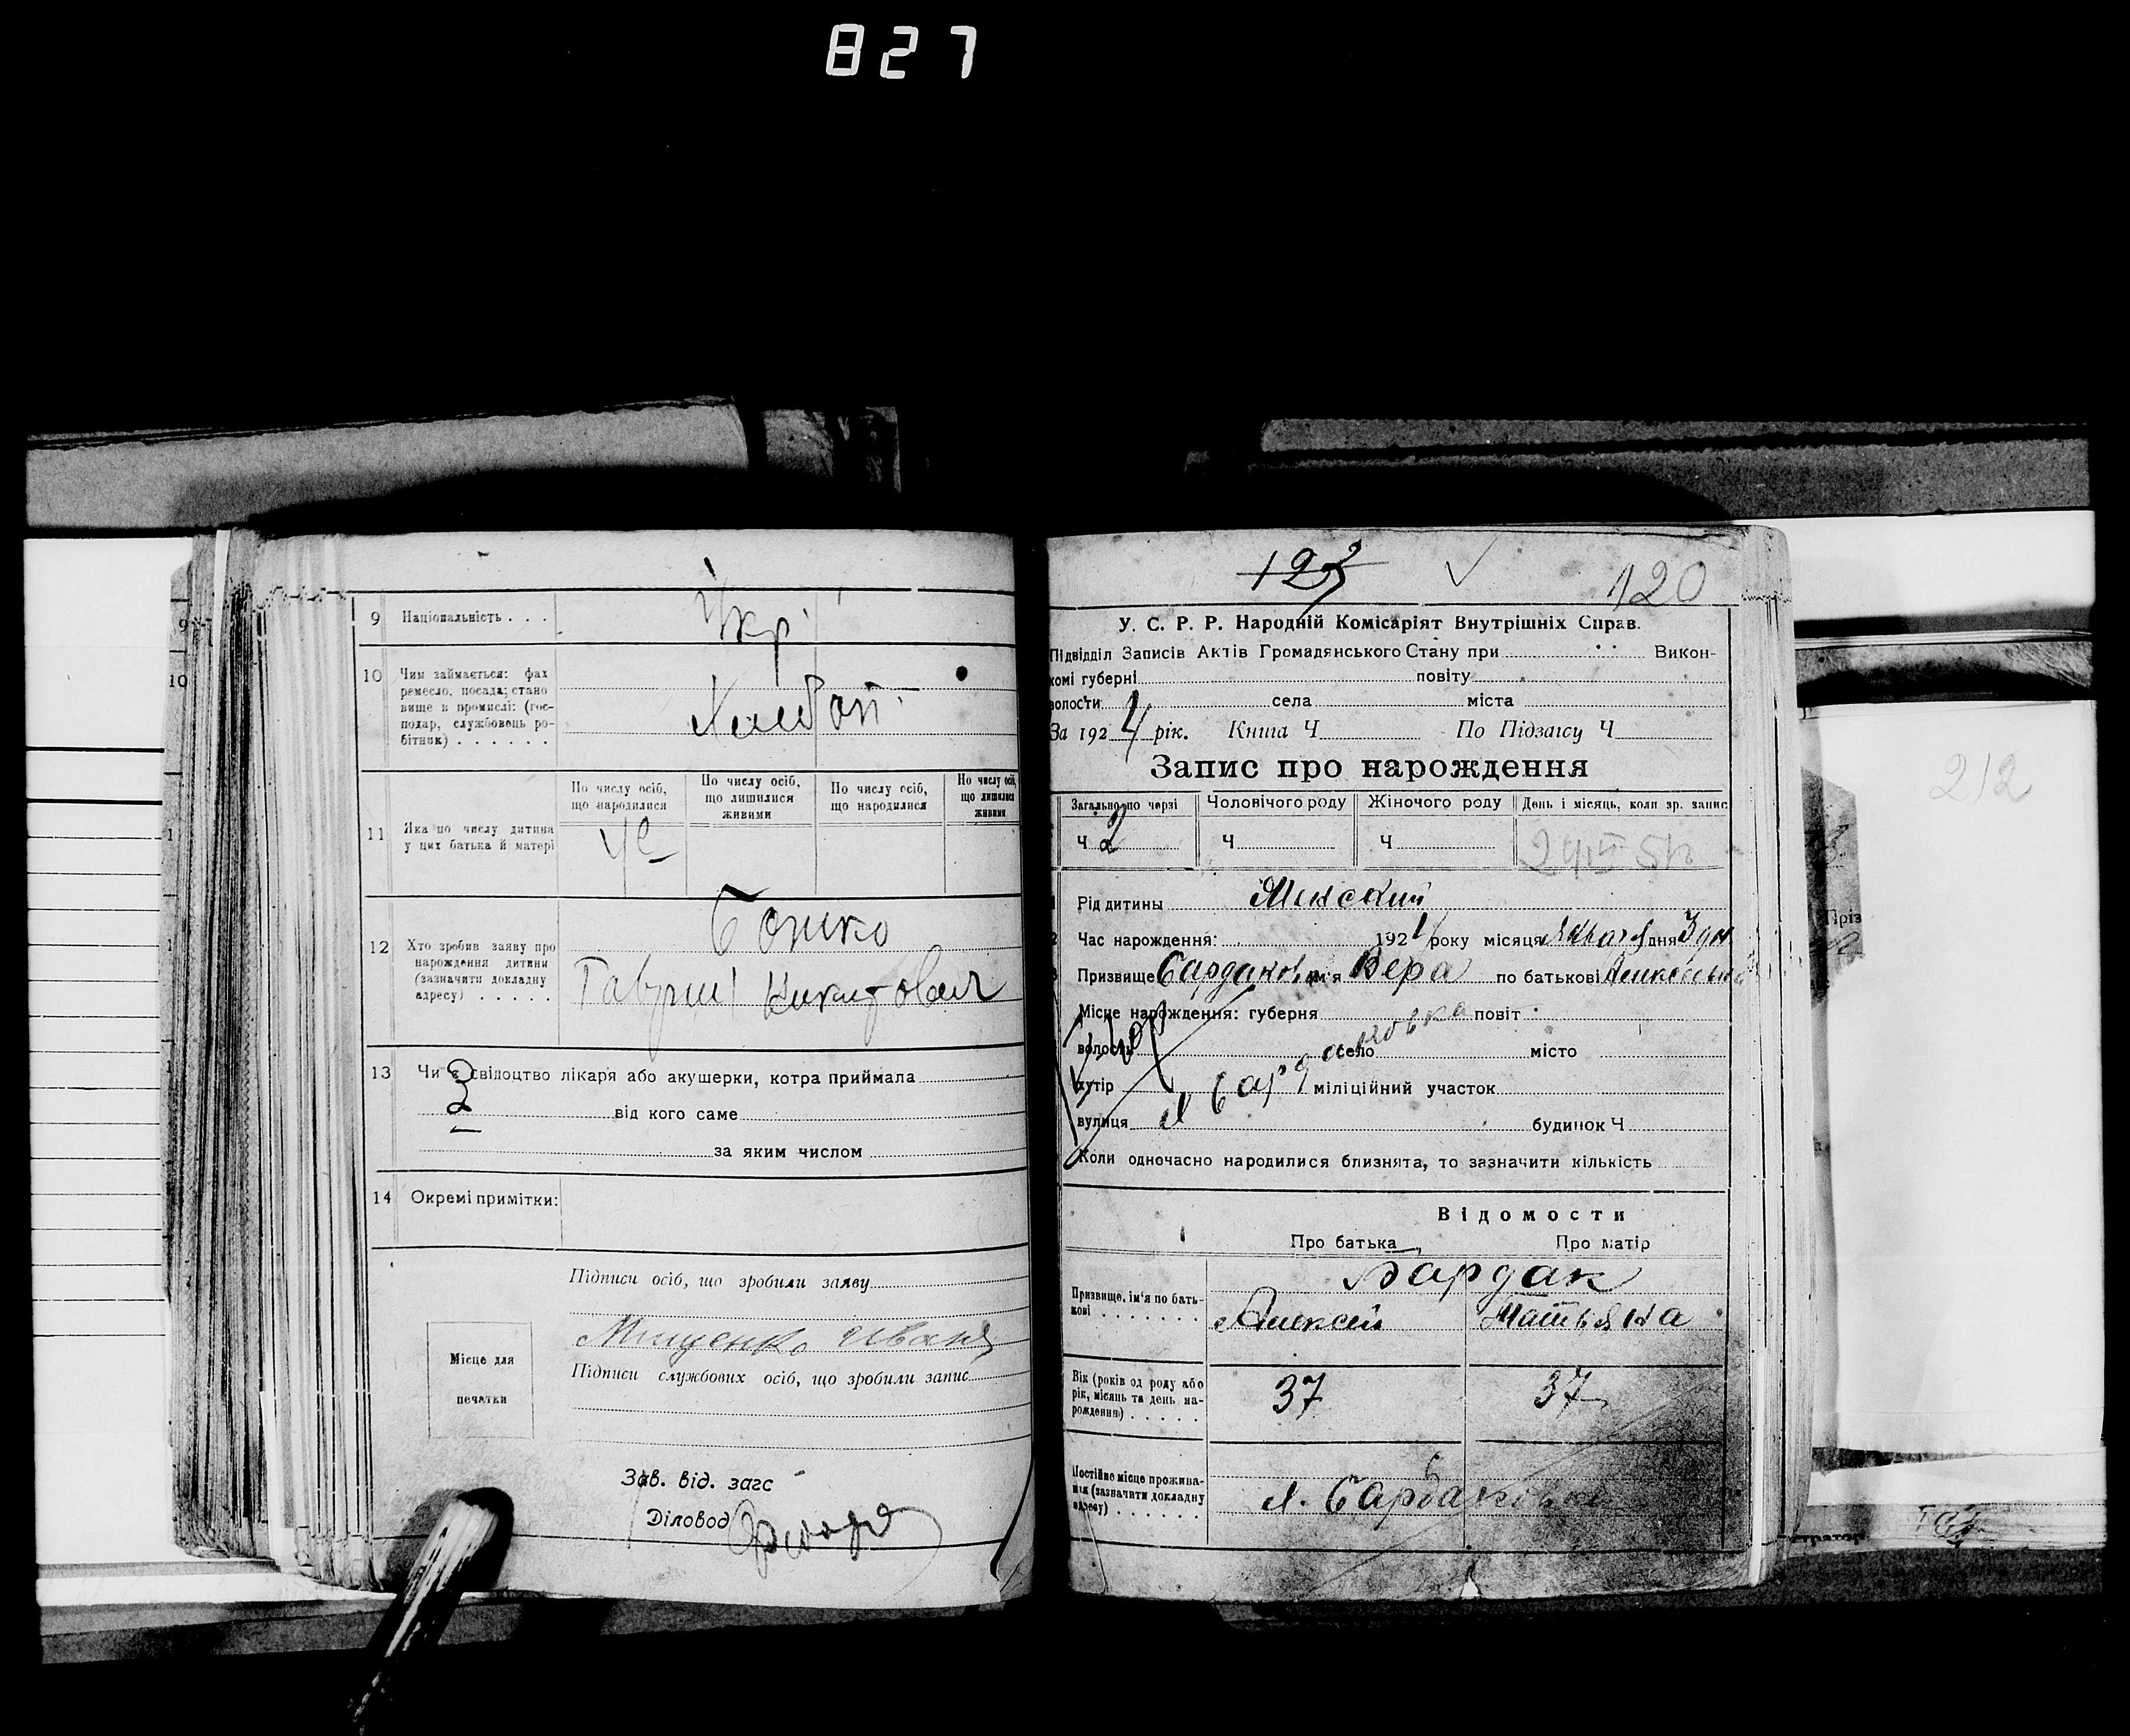 827
9 Національність . . .
Укр
10 Чим займається: фах
ремесло, посада; стано
вище в промислі: (гос-
подар, службовець ро-
бітник) . . . . . .
Хлебоп
11 Яка по числу дитина
у цих батька й матері
По числу осіб,
що народилися
По числу осіб,
що лишилися
живими
По числу осіб,
що народилися
По числу осіб,
що лишилися
живими
12 Хто зробив заяву про
нарождення дитини
(зазначити докладну
адресу) . . . . .
Бошко
Гавриил Никитович
13 Чи є свідоцтво лікаря або акушерки, котра приймала
від кого саме
за яким числом
14 Окремі примітки:
Підписи осіб, що зробили заяву
Мищенко Иван
Підписи службових осіб, що зробили запис
Місце для
печатки
Зав. від. загс
Діловод
123
120
У. С. Р. Р. Народній Комісаріят Внутрішніх Справ.
Підвідділ Записів Актів Громадянського Стану при Викон-
комі губерні повіту
волости села міста
За 1924 рік. Книга Ч По Підзаісу Ч
Запис про нарождення
Загально по черзі Чоловічого роду Жіночого роду День і місяць, коли зр. запис
Ч 2 Ч Ч
Рід дитины Женский
Час нарождення: 1924 року місяця Января дня 3 дня
Призвище Бардакова им'я Вера по батькові Алексеевна
Місце нарождення: губерня повіт
волость село місто
хутір міліційний участок
х Бардаковка
вулиця будинок Ч
Коли одночасно народилися близнята, то зазначити кількість
Відомости
Про батька Про матір
Бардак
Призвище, ім'я по бать-
кові . . . . . . .
Алексей Татьяна
Вік (років од роду або
рік, місяць та день на-
рождення) . . . . . .
37 37
Постійне місце прожива-
ння (зазначити докладну
адресу) . . . . . .
х. Бардаковка
212